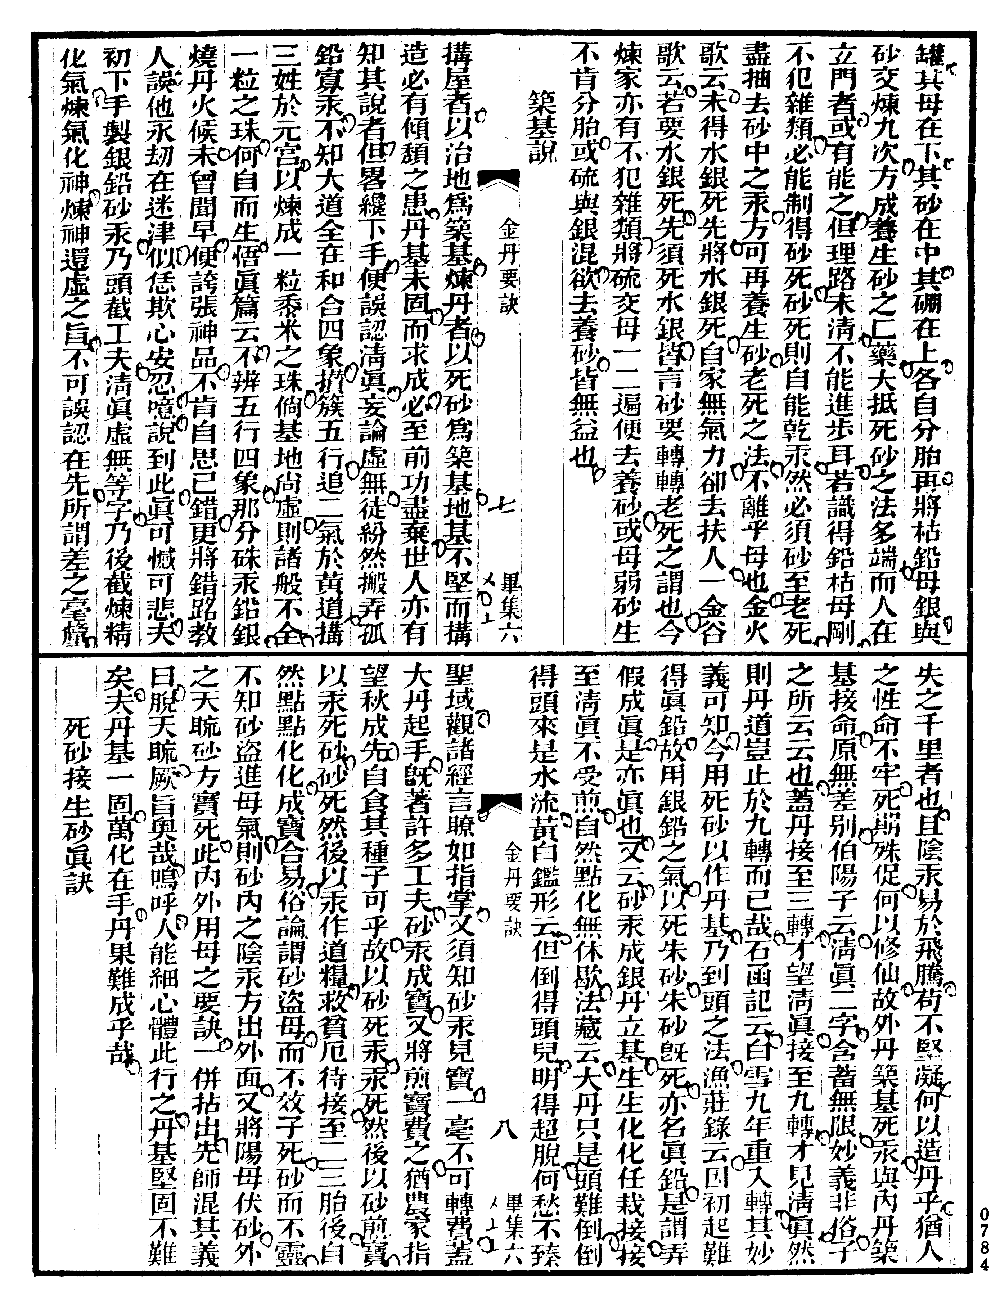 罐其母在下其砂在中其硼在上各自分胎再將枯鉛母銀與
砂交煉九次方成養生砂之仁藥大抵死砂之法多端而人在
立門者或有能之但理路未淸不能進步耳若識得鉛枯母剛
不犯雜類必能制得砂死砂死則自能乾汞然必須砂至老死
盡抽去砂中之汞方可再養生砂老死之法不離乎母也金火
歌云未得水銀死先將水銀死自家無氣力卻去扶人一金谷
歌云若要水銀死先須死水銀皆言砂要轉轉老死之謂也今
煉家亦有不犯雜類將硫交母一二遍便去養砂或母弱砂生
不肯分胎或硫與銀混欲去養砂皆無益也
築基說
金丹要訣
七
畢集六
搆屋者以治地爲築基煉丹者以死砂爲築基地基不堅而搆
造必有傾頽之患丹基未固而求成必至前功盡棄世人亦有
知其說者但畧纔下手便誤認淸眞妄論虛無徒紛然搬弄孤
鉛寡汞不知大道全在和合四象攢簇五行追二氣於黃道搆
三姓於元宮以煉成一粒黍米之珠倘基地尙虛則諸般不全
一粒之珠何自而生悟眞篇云不辨五行四象那分硃汞鉛銀
燒丹火候未曾聞早便誇張神品不肯自思已錯更將錯路教
人誤他永刧在迷津似恁欺心安忍噫說到此眞可憾可悲夫
初下手製銀鉛砂汞乃頭截工夫淸眞虛無等字乃後截煉精
化氣煉氣化神煉神還虛之旨不可誤認在先所謂差之毫釐
失之千里者也且陰汞易於飛騰苟不堅凝何以造丹乎猶人
之性命不牢死期殊促何以修仙故外丹築基死汞與內丹築
基接命原無差别伯陽子云淸眞二字含蓄無限妙義非俗子
之所云云也蓋丹接至三轉才望淸眞接至九轉才見淸眞然
則丹道豈止於九轉而已哉石函記云白雪九年重入轉其妙
義可知今用死砂以作丹基乃到頭之法漁莊錄云因初起難
得眞鉛故用銀鉛之氣以死朱砂朱砂旣死亦名眞鉛是謂弄
假成眞是亦眞也又云砂汞成銀丹立基生生化化任栽接接
至淸眞不受煎自然點化無休歇法藏云大丹只是頭難倒倒
得頭來是水流黃白鑑形云但倒得頭兒明得超脫何愁不臻
金丹要訣
八
畢集六
聖域觀諸經言瞭如指掌又須知砂汞見寶一毫不可轉費蓋
大丹起手旣著許多工夫砂汞成寶又將煎寶費之猶農家指
望秋成先自食其種子可乎故以砂死汞汞死然後以砂煎寶
以汞死砂砂死然後以汞作道糧救貧厄待接至二三胎後自
然點點化化成寶合易俗論謂砂盜母而不效子死砂而不靈
不知砂盜進母氣則砂內之陰汞方出外面又將陽母伏砂外
之天䀮砂方實死此內外用母之要訣一併拈出先師混其義
曰脫天䀮厥旨奧哉嗚呼人能細心體此行之丹基堅固不難
矣夫丹基一固萬化在手丹果難成乎哉
死砂接生砂眞訣
0784